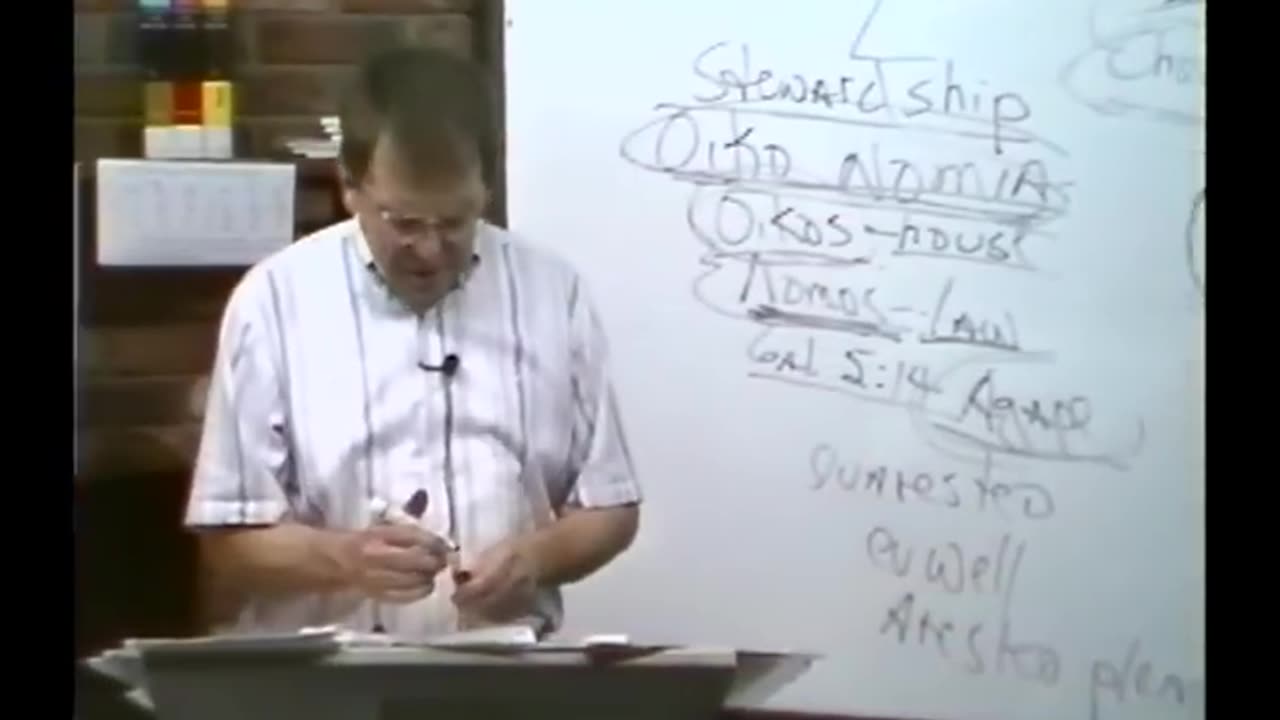 Stewardship
Oiko Nomias
Oikos - house
Nomos - Law
Gal 5:14 Agape
euaresteo
eu well
Aresteo